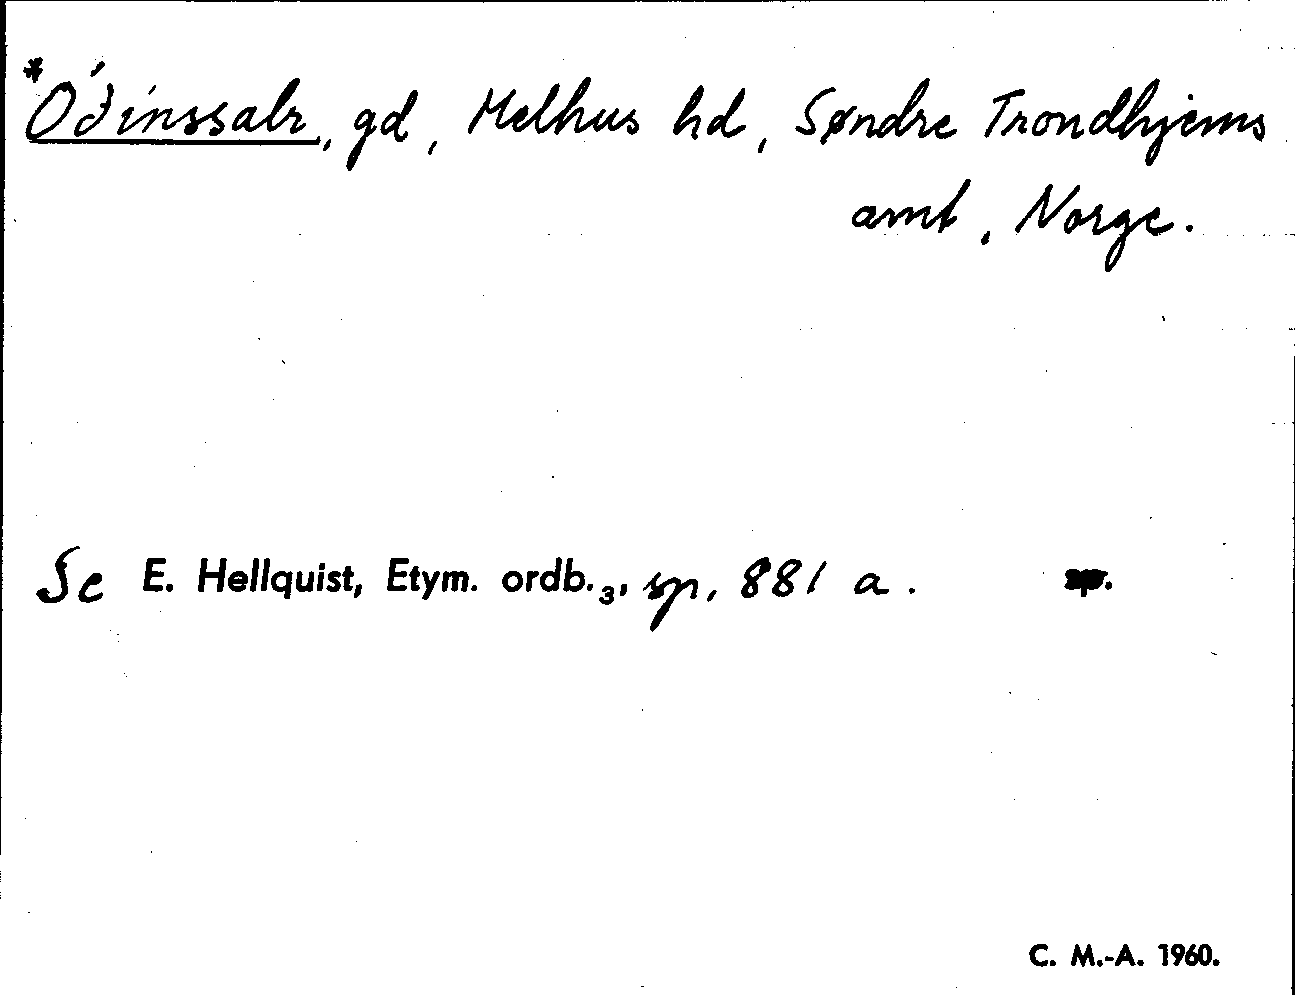 *Óðinssalr, gd, Melhus hd, Søndre Trondhjems
amt, Norge.
Se E. Hellquist, Etym. ordb.₃, sp, 881 a.
C. M.-A. 1960.